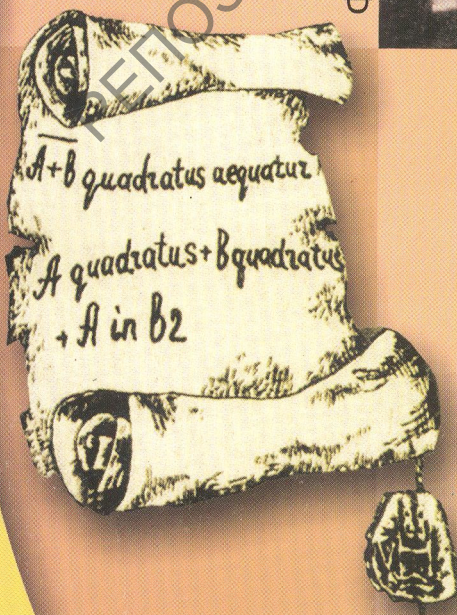 РЕПОЗ
A+B quadratus aequatur
A quadratus+B quadratus
+ A in B2